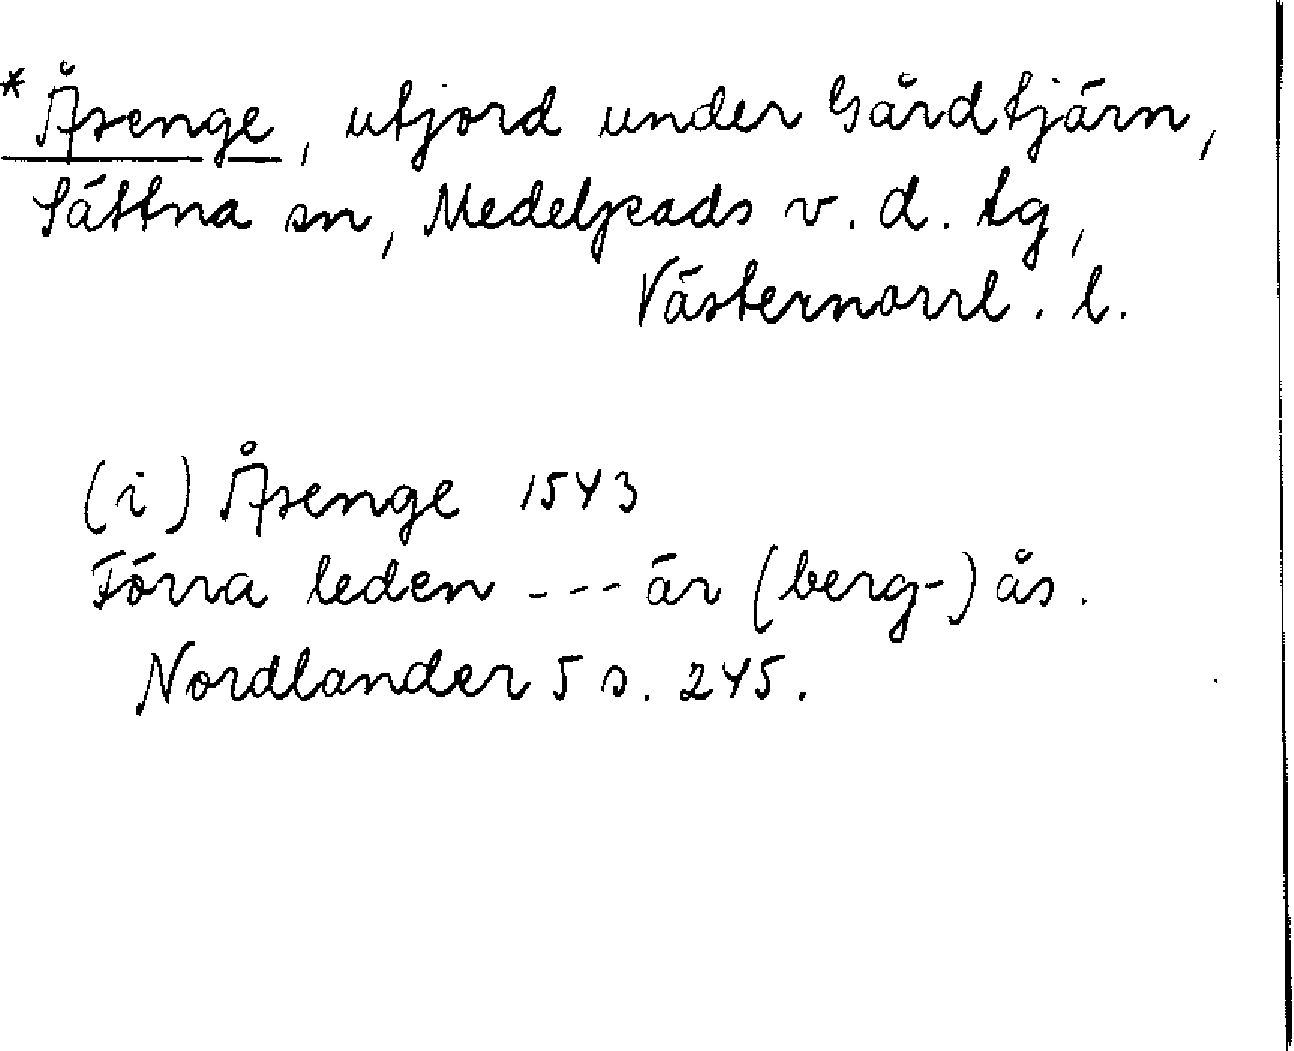 * Åsenge, utjord under Gårdtjärn,
Sättna sn, Medelpads v. d. tg,
Västernorrl. l.
(i) Åsenge 1543
Förra leden --- är (berg-) ås.
Nordlander 5 s. 245.